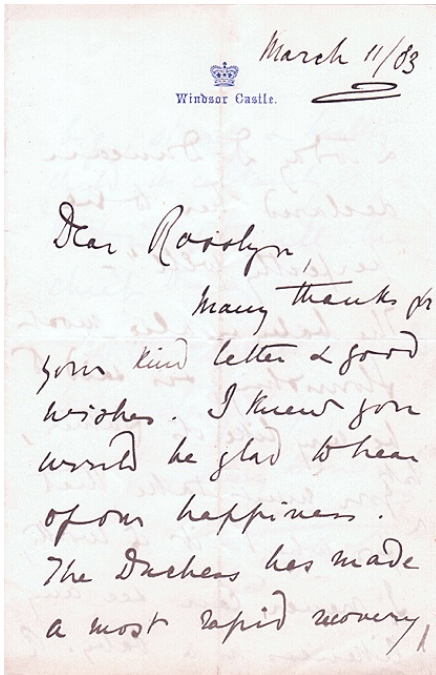 March 11/83
Windsor Castle.
Dear Rosslyn,
Many thanks for
your kind letter & good
wishes. I knew you
would be glad to hear
of our happiness.
The Duchess has made
a most rapid recovery